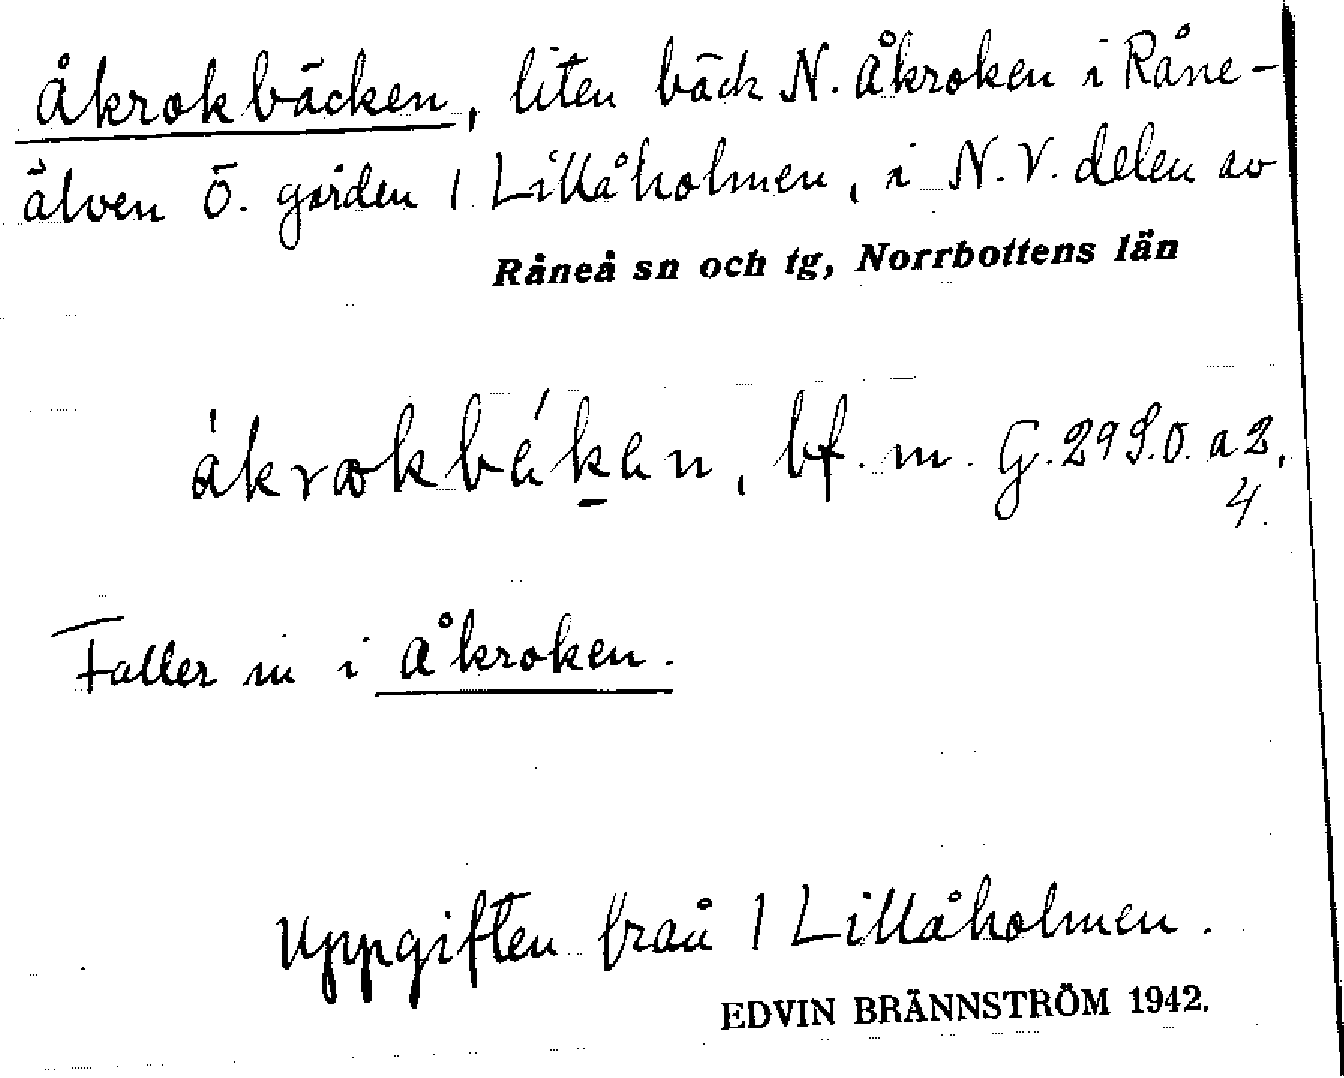 Åkrokbäcken, liten bäck N. Åkroken i Råne-
älven Ö. gården 1 Lillåholmen, i N.V. delen av
Råneå sn och tg, Norrbottens län
bf. m. G. 29 S.O. a 2,
4.
Faller in i Åkroken.
Uppgiften från 1 Lillåholmen.
EDVIN BRÄNNSTRÖM 1942.